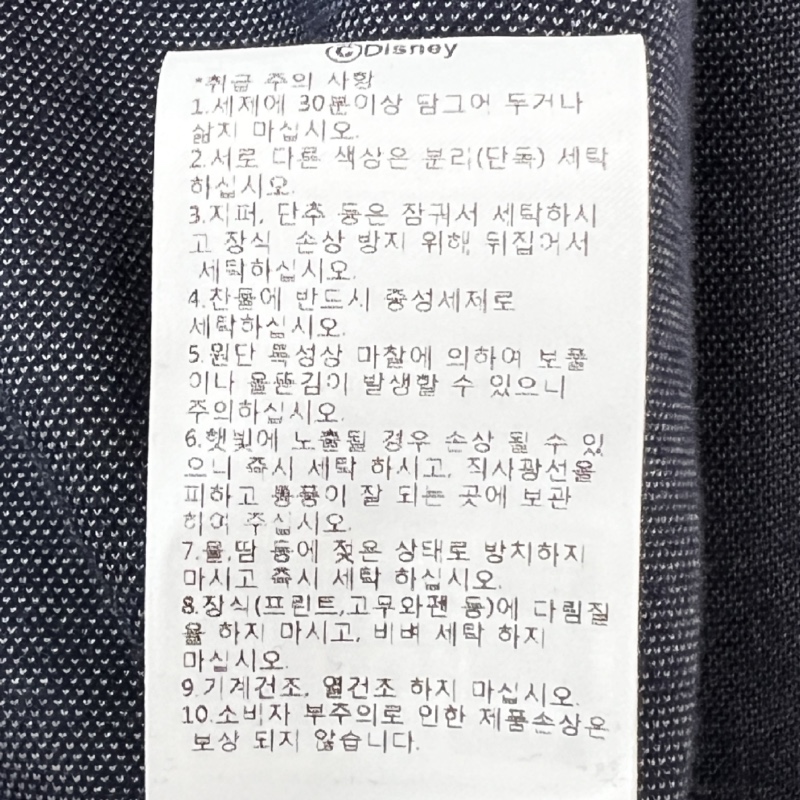 ©Disney
*취급 주의 사항
1.세제에 30분이상 담그어 두거나
삶지 마십시오.
2.서로 다른 색상은 분리(단독) 세탁
하십시오.
3.지퍼, 단추 등은 잠궈서 세탁하시
고 장식 손상 방지 위해 뒤집어서
세탁하십시오.
4.찬물에 반드시 중성세제로
세탁하십시오.
5.원단 특성상 마찰에 의하여 보풀
이나 올뜯김이 발생할 수 있으니
주의하십시오.
6.햇빛에 노출될 경우 손상 될 수 있
으니 즉시 세탁 하시고, 직사광선을
피하고 통풍이 잘 되는 곳에 보관
하여 주십시오.
7.물,땀 등에 젖은 상태로 방치하지
마시고 즉시 세탁 하십시오.
8.장식(프린트,고무와펜 등)에 다림질
을 하지 마시고, 비벼 세탁 하지
마십시오.
9.기계건조, 열건조 하지 마십시오.
10.소비자 부주의로 인한 제품손상은
보상 되지 않습니다.